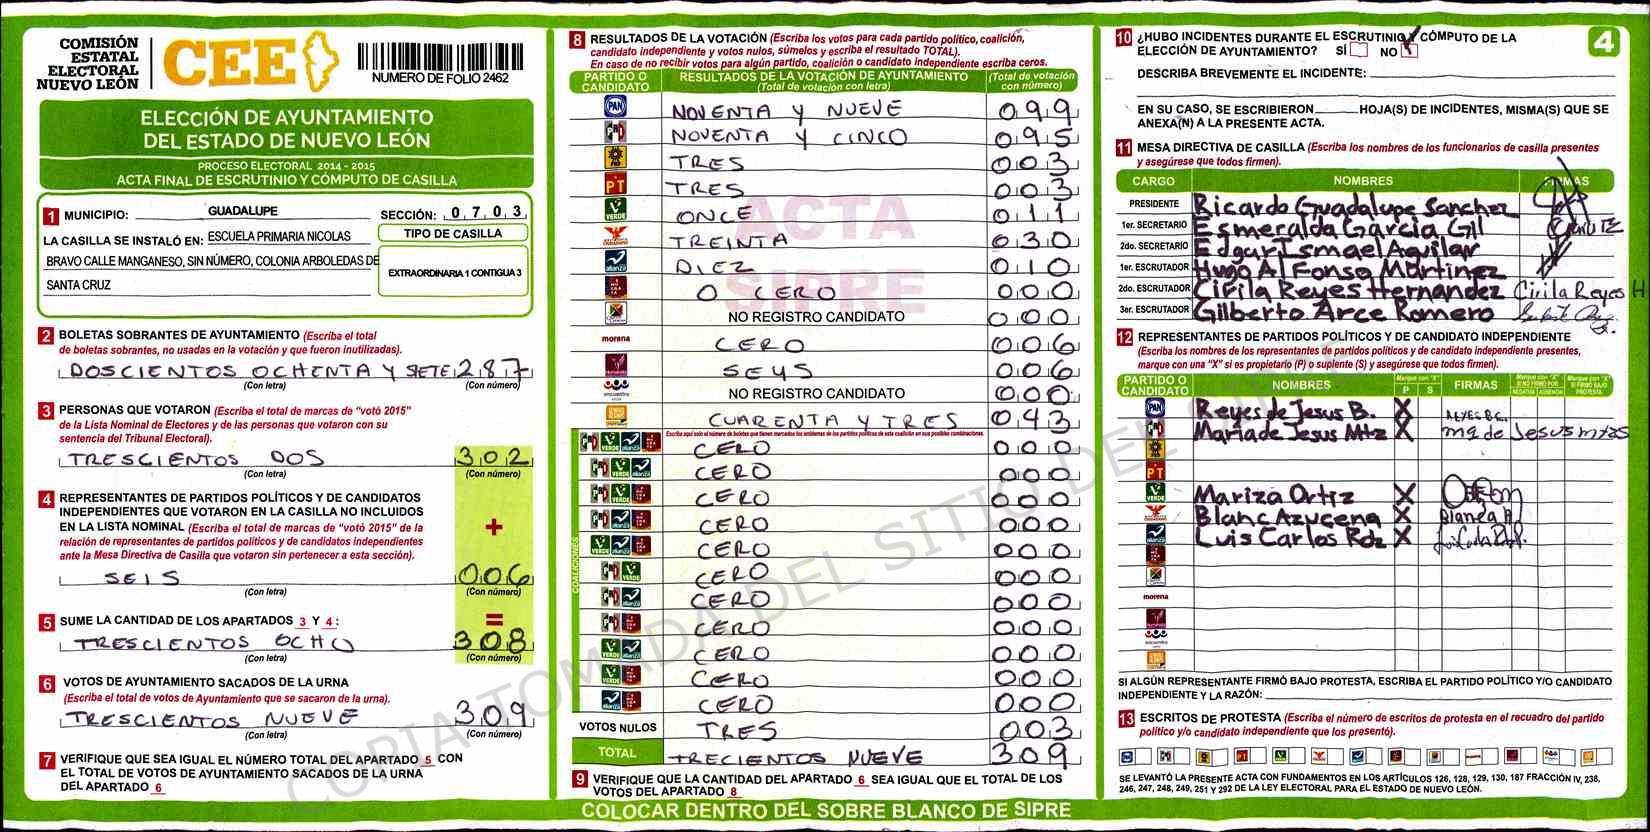 COMISIÓN
ESTATAL
ELECTORAL
NUEVO LEÓN
CEE
NUMERO DE FOLIO 2462
ELECCIÓN DE AYUNTAMIENTO
DEL ESTADO DE NUEVO LEÓN
PROCESO ELECTORAL 2014 - 2015
ACTA FINAL DE ESCRUTINIO Y CÓMPUTO DE CASILLA
1 MUNICIPIO: GUADALUPE SECCIÓN: 0 7 0 3
LA CASILLA SE INSTALÓ EN: ESCUELA PRIMARIA NICOLAS
BRAVO CALLE MANGANESO, SIN NÚMERO, COLONIA ARBOLEDAS DE
SANTA CRUZ
TIPO DE CASILLA
EXTRAORDINARIA 1 CONTIGUA 3
2 BOLETAS SOBRANTES DE AYUNTAMIENTO (Escriba el total
de boletas sobrantes, no usadas en la votación y que fueron inutilizadas).
DOSCIENTOS OCHENTA Y SIETE 287
(Con letra) (Con número)
3 PERSONAS QUE VOTARON (Escriba el total de marcas de "votó 2015"
de la Lista Nominal de Electores y de las personas que votaron con su
sentencia del Tribunal Electoral).
TRESCIENTOS DOS 302
(Con letra) (Con número)
4 REPRESENTANTES DE PARTIDOS POLÍTICOS Y DE CANDIDATOS
INDEPENDIENTES QUE VOTARON EN LA CASILLA NO INCLUIDOS
EN LA LISTA NOMINAL (Escriba el total de marcas de "votó 2015" de la
relación de representantes de partidos políticos y de candidatos independientes
ante la Mesa Directiva de Casilla que votaron sin pertenecer a esta sección).
+
SEIS 006
(Con letra) (Con número)
=
5 SUME LA CANTIDAD DE LOS APARTADOS 3 Y 4:
TRESCIENTOS OCHO 308
(Con letra) (Con número)
6 VOTOS DE AYUNTAMIENTO SACADOS DE LA URNA
(Escriba el total de votos de Ayuntamiento que se sacaron de la urna).
TRESCIENTOS NUEVE 309
(Con letra) (Con número)
7 VERIFIQUE QUE SEA IGUAL EL NÚMERO TOTAL DEL APARTADO 5 CON
EL TOTAL DE VOTOS DE AYUNTAMIENTO SACADOS DE LA URNA
DEL APARTADO 6
8 RESULTADOS DE LA VOTACIÓN (Escriba los votos para cada partido político, coalición,
candidato independiente y votos nulos, súmelos y escriba el resultado TOTAL).
En caso de no recibir votos para algún partido, coalición o candidato independiente escriba ceros.
PARTIDO O CANDIDATO RESULTADOS DE LA VOTACIÓN DE AYUNTAMIENTO (Total de votación con letra) (Total de votación con número)
PAN NOVENTA Y NUEVE 099
PRD NOVENTA Y CINCO 095
TRES 003
PT TRES 003
VERDE ONCE 011
TREINTA 030
alianza DIEZ 010
O CERO 000
NO REGISTRO CANDIDATO 000
morena CERO 006
SEYS 006
encuentro NO REGISTRO CANDIDATO 000
CUARENTA Y TRES 043
Escriba aquí solo el número de boletas que tienen marcados los emblemas de los partidos políticos de esta coalición en sus posibles combinaciones.
COALICIONES
CERO 000
CERO 000
CERO 000
CERO 000
CERO 000
CERO 000
CERO 000
CERO 000
CERO 000
CERO 000
CERO 000
VOTOS NULOS TRES 003
TOTAL TRECIENTOS NUEVE 309
9 VERIFIQUE QUE LA CANTIDAD DEL APARTADO 6 SEA IGUAL QUE EL TOTAL DE LOS
VOTOS DEL APARTADO 8
ACTA
SIPRE
COPIA TOMADA DEL SITIO DEL SIPRE
COLOCAR DENTRO DEL SOBRE BLANCO DE SIPRE
10 ¿HUBO INCIDENTES DURANTE EL ESCRUTINIO Y CÓMPUTO DE LA
ELECCIÓN DE AYUNTAMIENTO? SÍ NO X
4
DESCRIBA BREVEMENTE EL INCIDENTE:
EN SU CASO, SE ESCRIBIERON HOJA(S) DE INCIDENTES, MISMA(S) QUE SE
ANEXA(N) A LA PRESENTE ACTA.
11 MESA DIRECTIVA DE CASILLA (Escriba los nombres de los funcionarios de casilla presentes
y asegúrese que todos firmen).
CARGO NOMBRES FIRMAS
PRESIDENTE Ricardo Guadalupe Sanchez
1er. SECRETARIO Esmeralda Garcia Gil
2do. SECRETARIO Edgar Ismael Aguilar
1er. ESCRUTADOR Hugo Alfonso Martinez
2do. ESCRUTADOR Cirila Reyes Hernandez Cirila Reyes H
3er. ESCRUTADOR Gilberto Arce Romero
12 REPRESENTANTES DE PARTIDOS POLÍTICOS Y DE CANDIDATO INDEPENDIENTE
(Escriba los nombres de los representantes de partidos políticos y de candidato independiente presentes,
marque con una "X" si es propietario (P) o suplente (S) y asegúrese que todos firmen).
PARTIDO O CANDIDATO NOMBRES P S FIRMAS
PAN Reyes de Jesus B. X
Maria de Jesus Mtz X Ma de Jesus mtz
PT
VERDE Mariza Ortiz X
Blanc Azucena X Blanca A
Luis Carlos Rdz X
morena
SI ALGÚN REPRESENTANTE FIRMÓ BAJO PROTESTA, ESCRIBA EL PARTIDO POLÍTICO Y/O CANDIDATO
INDEPENDIENTE Y LA RAZÓN:
13 ESCRITOS DE PROTESTA (Escriba el número de escritos de protesta en el recuadro del partido
político y/o candidato independiente que los presentó).
SE LEVANTÓ LA PRESENTE ACTA CON FUNDAMENTOS EN LOS ARTÍCULOS 126, 128, 129, 130, 187 FRACCIÓN IV, 238,
246, 247, 248, 249, 251 Y 292 DE LA LEY ELECTORAL PARA EL ESTADO DE NUEVO LEÓN.